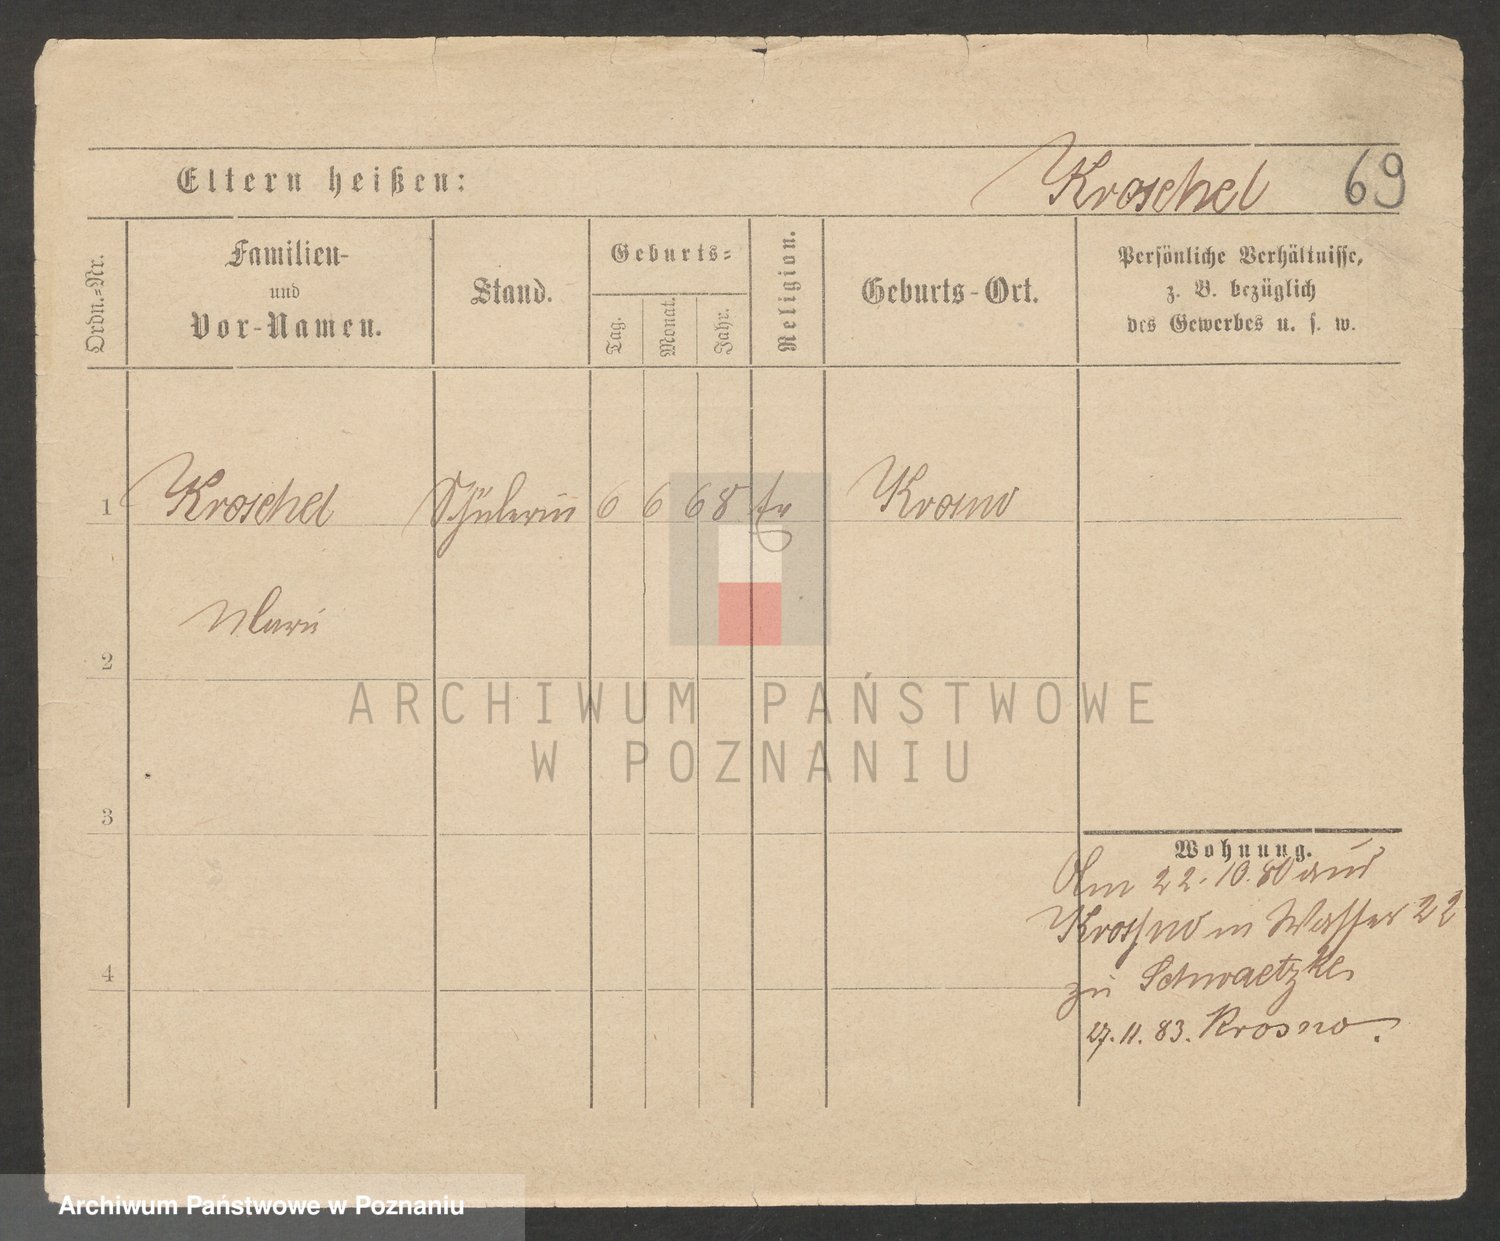 Eltern heißen:
Kroschel 69
Ordn.=Nr.
Familien-
und
Vor-Namen.
Stand.
Geburts=
Tag.
Monat.
Jahr.
Religion.
Geburts-Ort.
Persönliche Verhältnisse,
z. B. bezüglich
des Gewerbes u. s. w.
1 Kroschel Schülerin 6 6 68 Krosno
Marie
2
3
4
Wohnung.
Am 22.10.80 aus
Krosno in Wasser 22
zu Schwaetzke
27.11.83. Krosno.
ARCHIWUM PAŃSTWOWE
W POZNANIU
Archiwum Państwowe w Poznaniu